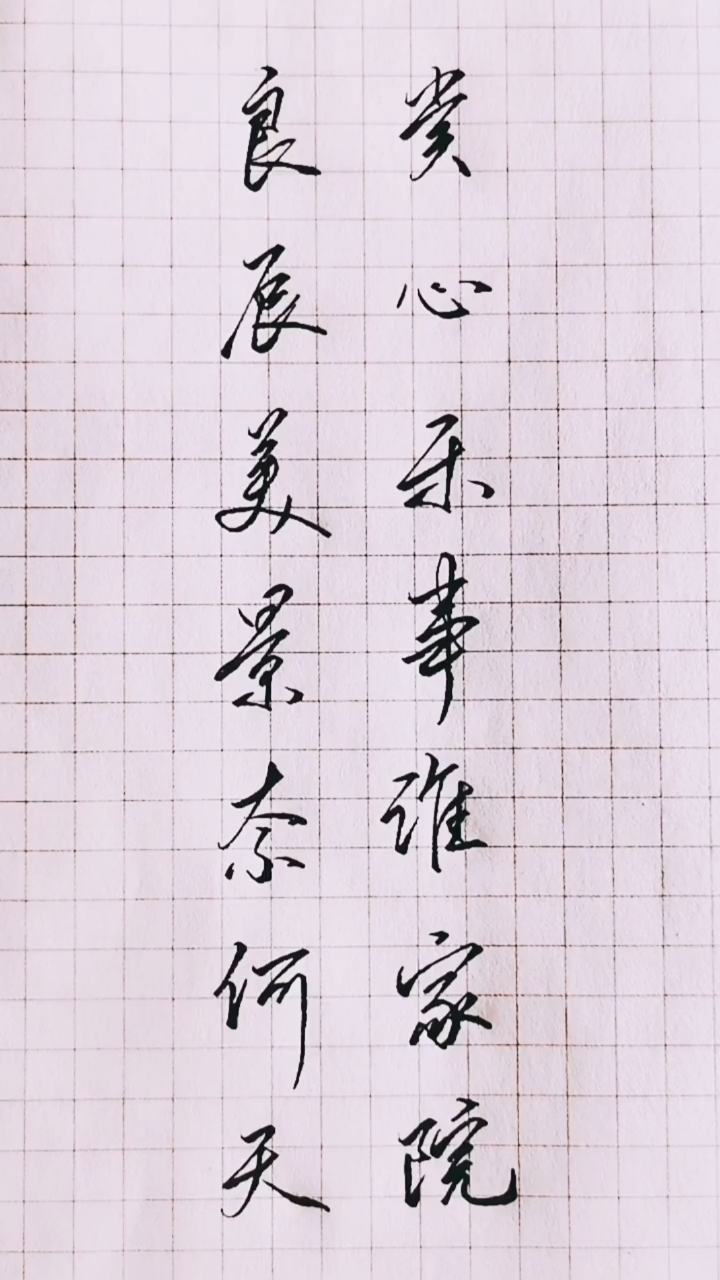 良辰美景奈何天
赏心乐事谁家院